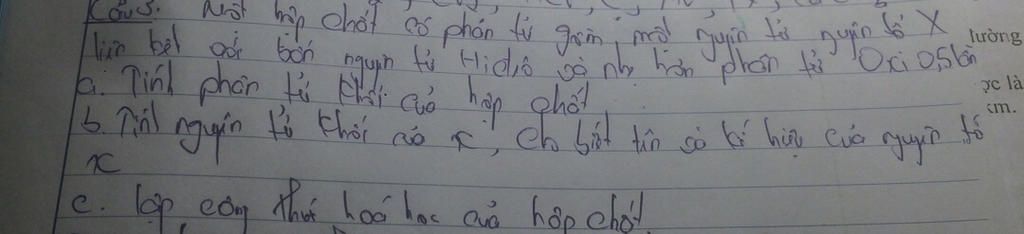 Câu 3. Một hợp chất có phân tử gồm một nguyên tử nguyên tố X
liên kết với bốn nguyên tử Hiđrô và nhẹ hơn phân tử Oxi 0,5 lần
a. Tính phân tử khối của hợp chất
b. Tính nguyên tử khối của x, cho biết tên và kí hiệu của nguyên tố
x
c. lập công thức hoá học của hợp chất.
lường
ọc là
km.